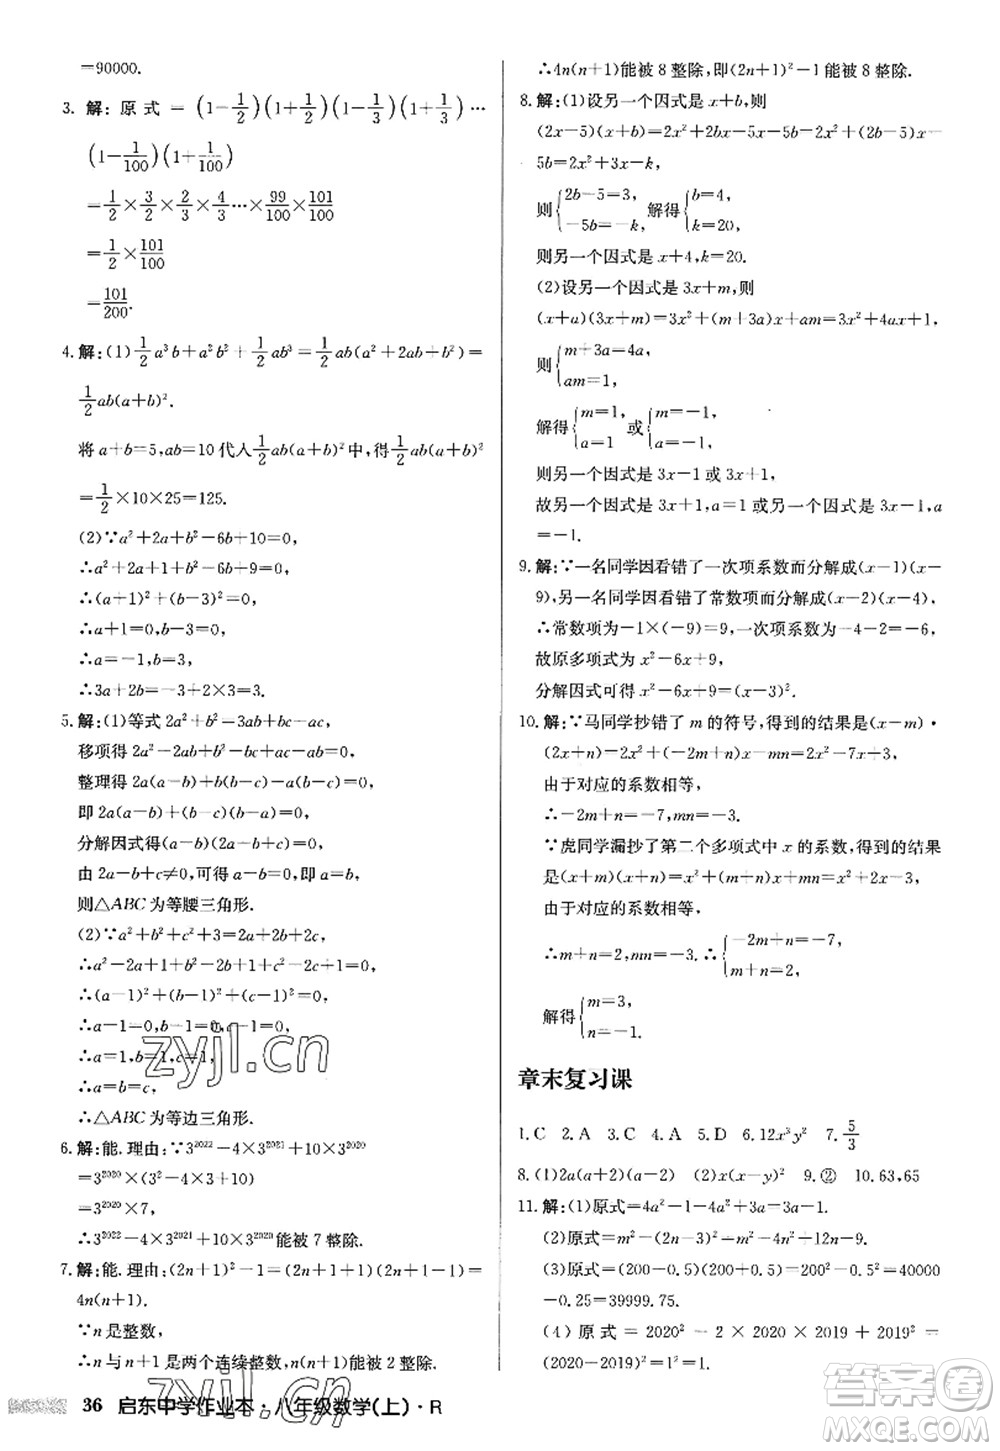 =90000.
3. 解:原式=(1-1/2)(1+1/2)(1-1/3)(1+1/3)…
(1-1/100)(1+1/100)
=1/2×3/2×2/3×4/3…×99/100×101/100
=1/2×101/100
=101/200.
4. 解:(1)1/2a³b+a²b²+1/2ab³=1/2ab(a²+2ab+b²)=
1/2ab(a+b)².
将a+b=5,ab=10代入1/2ab(a+b)²中,得1/2ab(a+b)²
=1/2×10×25=125.
(2)∵a²+2a+b²-6b+10=0,
∴a²+2a+1+b²-6b+9=0,
∴(a+1)²+(b-3)²=0,
∴a+1=0,b-3=0,
∴a=-1,b=3,
∴3a+2b=-3+2×3=3.
5. 解:(1)等式2a²+b²-3ab+bc=ac,
移项得2a²-2ab+b²-ab+bc-ac=0,
整理得2a(a-b)+b(b-c)-a(b-c)=0,
即2a(a-b)+(b-a)(b-c)=0,
分解因式得(a-b)(2a-b+c)=0,
由2a-b+c≠0,得到a-b=0,即a=b,
则△ABC为等腰三角形.
(2)∵a²+b²+c²-2(a+b+c)+3=0,
∴a²-2a+1+b²-2b+1+c²-2c+1=0,
∴(a-1)²+(b-1)²+(c-1)²=0,
∴a-1=0,b-1=0,c-1=0,
∴a=b=c=1,
∴△ABC为等边三角形.
6. 解:能.理由:∵3²⁰²²-4×3²⁰²¹+10×3²⁰²⁰
=3²⁰²⁰×(3²-4×3+10)
=3²⁰²⁰×7,
∴3²⁰²²-4×3²⁰²¹+10×3²⁰²⁰能被7整除.
7. 解:能.理由:(2n+1)²-1=(2n+1+1)(2n+1-1)=
4n(n+1).
∵n是整数,
∴n与n+1为两个连续整数,n(n+1)能被2整除.
∴4n(n+1)能被8整除,即(2n+1)²-1能被8整除.
8. 解:(1)设另一个因式是x+b,则
(2x-5)(x+b)=2x²+2bx-5x-5b=2x²+(2b-5)x-
5b=2x²+3x-k,
则{2b-5=3, -5b=-k, 解得{b=4, k=20,
则另一个因式是x+4,k=20.
(2)设另一个因式是3x+m,则
(x+a)(3x+m)=3x²+(m+3a)x+am=3x²+4ax+1,
则{m+3a=4a, am=1,
解得{m=1, a=1 或{m=-1, a=-1,
则另一个因式是3x-1或3x+1,
故另一个因式是3x+1,a=1或另一个因式是3x-1,a
=-1.
9. 解:∵一名同学因看错了一次项系数而分解成(x-1)(x-
9),另一名同学因看错了常数项而分解成(x-2)(x-4),
∴常数项为-1×(-9)=9,一次项系数为-4-2=-6,
故原多项式为x²-6x+9,
分解因式可得x²-6x+9=(x-3)².
10. 解:∵马同学抄错了m的符号,得到的结果是(x-m)·
(2x+n)=2x²+(-2m+n)x-mn=2x²-7x-3,
由于对应的系数相等,
∴-2m+n=-7,-mn=-3.
∵虎同学漏抄了第二个多项式中x的系数,得到的结果
是(x+m)(x+n)=x²+(m+n)x+mn=x²+2x-3,
由于对应的系数相等,
∴m+n=2,mn=-3.∴{-2m+n=-7, m+n=2,
解得{m=3, n=-1.
章末复习课
1.C 2.A 3.C 4.A 5.D 6.12x³y² 7.5/3
8.(1)2a(a+2)(a-2) (2)x(x-y)² 9.② 10.63,65
11. 解:(1)原式=4a²-1-4a²+3a=3a-1.
(2)原式=m²-6m-2m²+6m-9=-m²-9.
(3)原式=(200-0.5)(200+0.5)=200²-0.5²=40000
-0.25=39999.75.
(4)原式=2020²-2×2020×2019+2019²=
(2020-2019)²=1²=1.
36 启东中学作业本·八年级数学(上)·R
zyjl.cn
zyjl.cn
答案圈
MXQE.COM